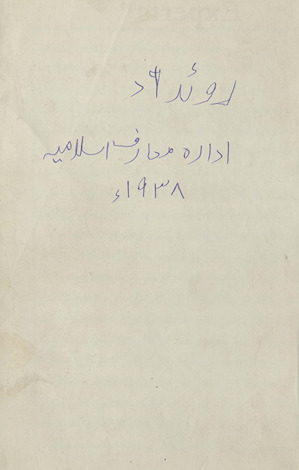 روئداد
ادارہ معارف اسلامیہ
۱۹۳۸ء